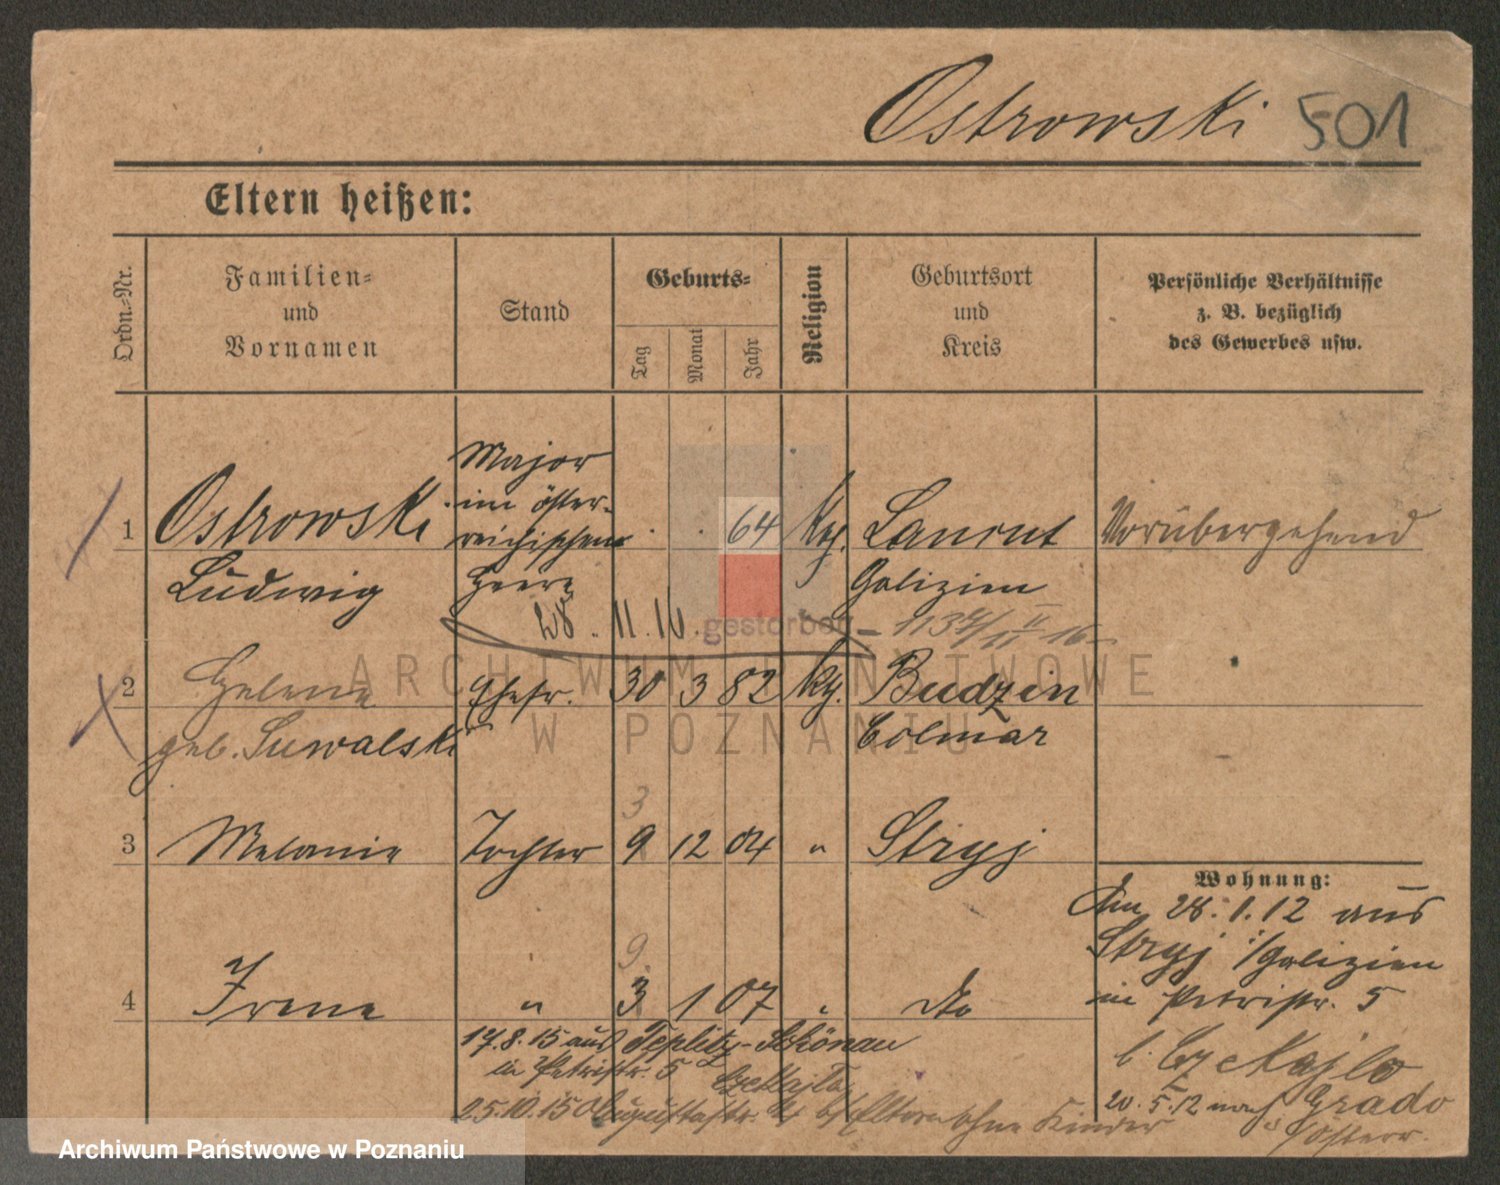 Ostrowski 501
Eltern heißen:
Ordn.-Nr.
Familien-
und
Vornamen
Stand
Geburts-
Tag
Monat
Jahr
Religion
Geburtsort
und
Kreis
Persönliche Verhältnisse
z. B. bezüglich
des Gewerbes usw.
Major
im öster-
1 Ostrowski reichischen . . 64 kg. Lancut Vorübergehend
Ludwig Heere Galizien
28. 11. 16. gestorben - 1137/II 16
2 Helene Ehefr. 30 3 82 kg. Budzin
geb. Suwalski Colmar
3
3 Melanie Tochter 9 12 04 " Stryj
Wohnung:
Am 28. 1. 12 aus
Stryj i/Galizien
9.
4 Irene " 3 1 07 " dto
in Petristr. 5
b. Czekajlo
20. 5. 12 nach Grado
i/Österr.
17. 8. 15 aus Teplitz-Schönau
in Petristr. 5 Czekajla
25. 10. 15 Augustastr. b/ Eltern ohne Kinder
ARCHIWUM PAŃSTWOWE
W POZNANIU
Archiwum Państwowe w Poznaniu